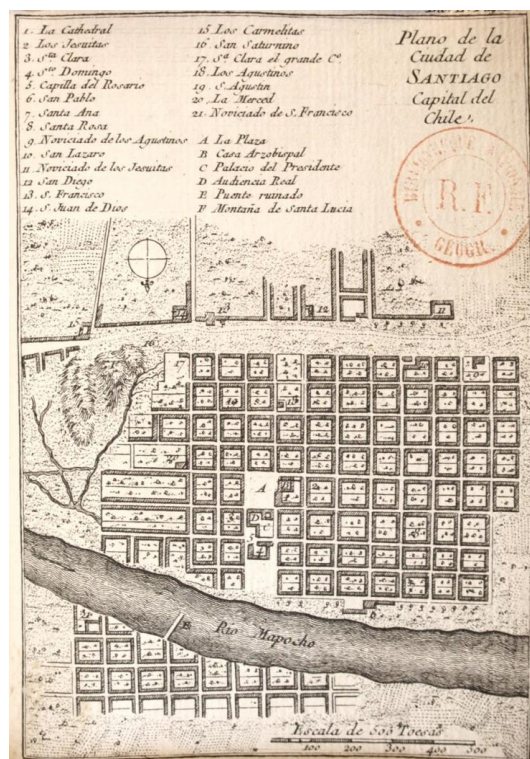 1. La Cathedral
2 Los Jesuitas
3. Sta Clara
4. Sto Domingo
5. Capilla del Rosario
6. San Pablo
7. Santa Ana
8. Santa Rosa
9. Noviciado de los Agustinos
10. San Lazaro
11. Noviciado de los Jesuitas
12 San Diego
13. S. Francisco
14. S. Juan de Dios
15 Los Carmelitas
16 San Saturnino
17. Sa Clara el grande Co
18. Los Agustinos
19. S. Agustin
20. La Merced
21. Noviciado de S. Francisco
A La Plaza
B Casa Arzobispal
C Palacio del Presidente
D Audiencia Real
E Puente ruinado
F Montaña de Santa Lucia
Plano de la
Ciudad de
SANTIAGO
Capital del
Chile.
R.F.
GEOGR.
16
17
12
11
A
E Rio Mapocho
Escala de 500 Toesas
100 200 300 400 500